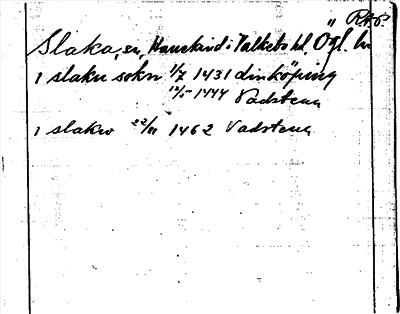 RAP
Slaka, sn, Hanekind i Valkebo hd, Ögl. ln
i slaku sokn 1/7 1431 Linköping
12/5 1444 Vadstena
i slako 22/11 1462 Vadstena